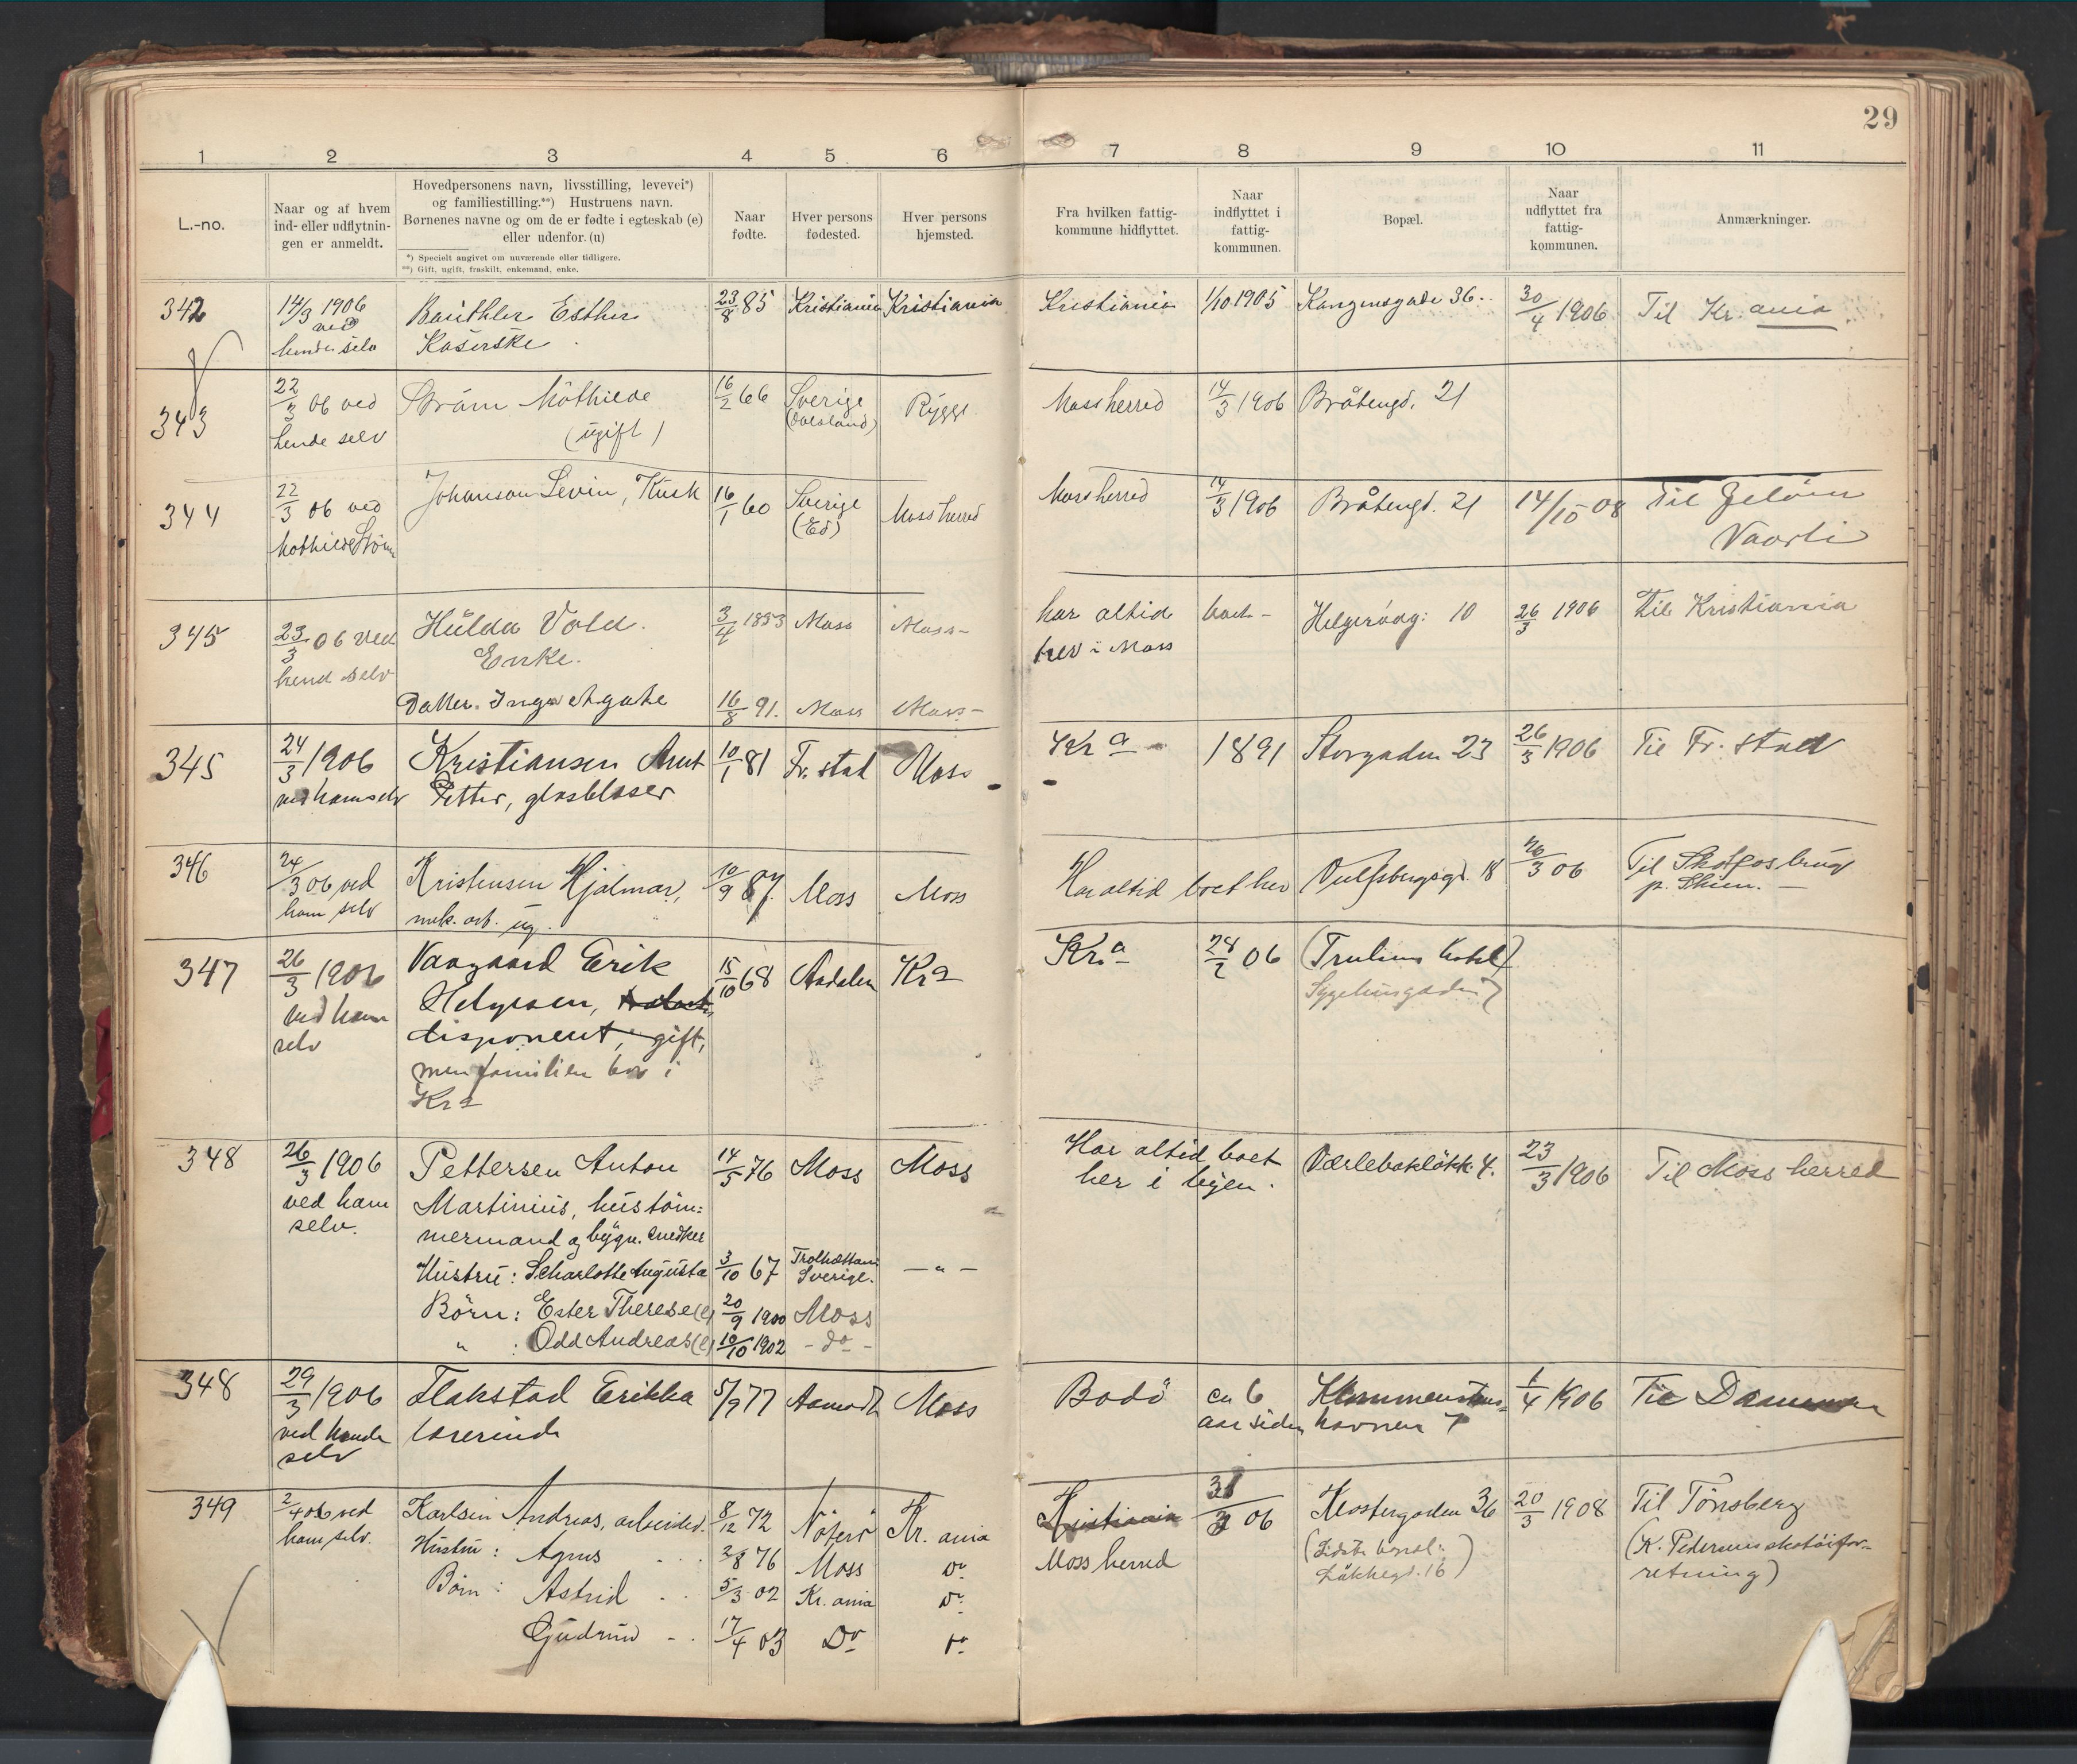 29
1 2 3 4 5 6 7 8 9 10 11
L.-no.
Naar og af hvem
ind- eller udflytnin-
gen er anmeldt.
Hovedpersonens navn, livsstilling, levevei*)
og familiestilling.**) Hustruens navn.
Børnenes navne og om de er fødte i egteskab (e)
eller udenfor. (u)
*) Specielt angivet om nuværende eller tidligere.
**) Gift, ugift, fraskilt, enkemand, enke.
Naar
fødte.
Hver persons
fødested.
Hver persons
hjemsted.
Fra hvilken fattig-
kommune hidflyttet.
Naar
indflyttet i
fattig-
kommunen.
Bopæl.
Naar
udflyttet fra
fattig-
kommunen.
Anmærkninger.
342 14/3 1906 Esther 23/8 85 Kristiania Kristiania Kristiania 1/10 1905 Kongensgade 36. 30/4 1906 Til Kr.ania
ved
hende selv Kaserske
343 22/3 06 ved Strøm Mathilde 16/2 66 Sverige Rygge Moss herred 14/3 1906 Bråtengd. 21
hende selv (ugift)
344 22/3 06 ved Johanson Levin, Kusk 16/1 60 Sverige Moss herred Moss herred 14/3 1906 Bråtengd. 21 14/10 08 Til Jeløen
Mathilde Strøm (Ed) Vaarli
345 23/3 06 ved Hulda Vold. 3/4 1853 Moss Moss- har altid boet- Helgerødg: 10 26/3 1906 til Kristiania
hend selv Enke. her i Moss
Datter. Inga Agathe 16/8 91. Moss Moss-
345 24/3 1906 Kristiansen Arnt 10/1 81 Fr. stad Moss Kra 1891 Storgaden 23 26/3 1906 Til Fr. stad
ved ham selv Petter, glasblaser
346 24/3 06 ved Kristensen Hjalmar, 10/9 87. Moss Moss Har altid boet her Vulfsbergsgd. 18 26/3 06 Til Skotfos brug
ham selv mek. arb. ug. p. Skien.
347 26/3 1906 Vaagaard Erik 15/10 68 Aadalen Kra Kra 28/2 06 (Trulsens hotel)
ved ham Helgesen,
selv disponent, gift,
men familien bor i
Kra
348 26/3 1906 Pettersen Anton 14/5 76 Moss Moss Har altid boet Værlebakløkk. 4. 23/3 1906 Til Moss herred
ved ham Martinius, hustøm= her i byen.
selv. mermand og bygn. snedker
Hustru: S. Charlotte Augusta 3/10 67 Trolhættan - " -
Sverige.
Børn: Ester Therese (e) 20/9 1900 Moss
" : Odd Andreas (e) 10/10 1902 - do -
348 29/3 1906 Flakstad Erikka 5/9 77 Moss Bodö ca 6 1/4 1906 Til
ved hende lærerinde aar siden havnen 7
selv
349 2/4 06 ved Karlsen Andreas, arbeider. 8/12 72 Nøterø Kr. ania Kristiania 31/3 06 Klostergaden 36 20/3 1908 Til Tönsberg
ham selv. Hustru: Agnes 2/8 76 Moss Do Moss herred (Sidste bopæl: (K. Pedersens skotöifor-
Børn: Astrid 5/3 02 Kr. ania Do Løkkegd. 16) retning)
Gudrun 17/4 03 Do Do